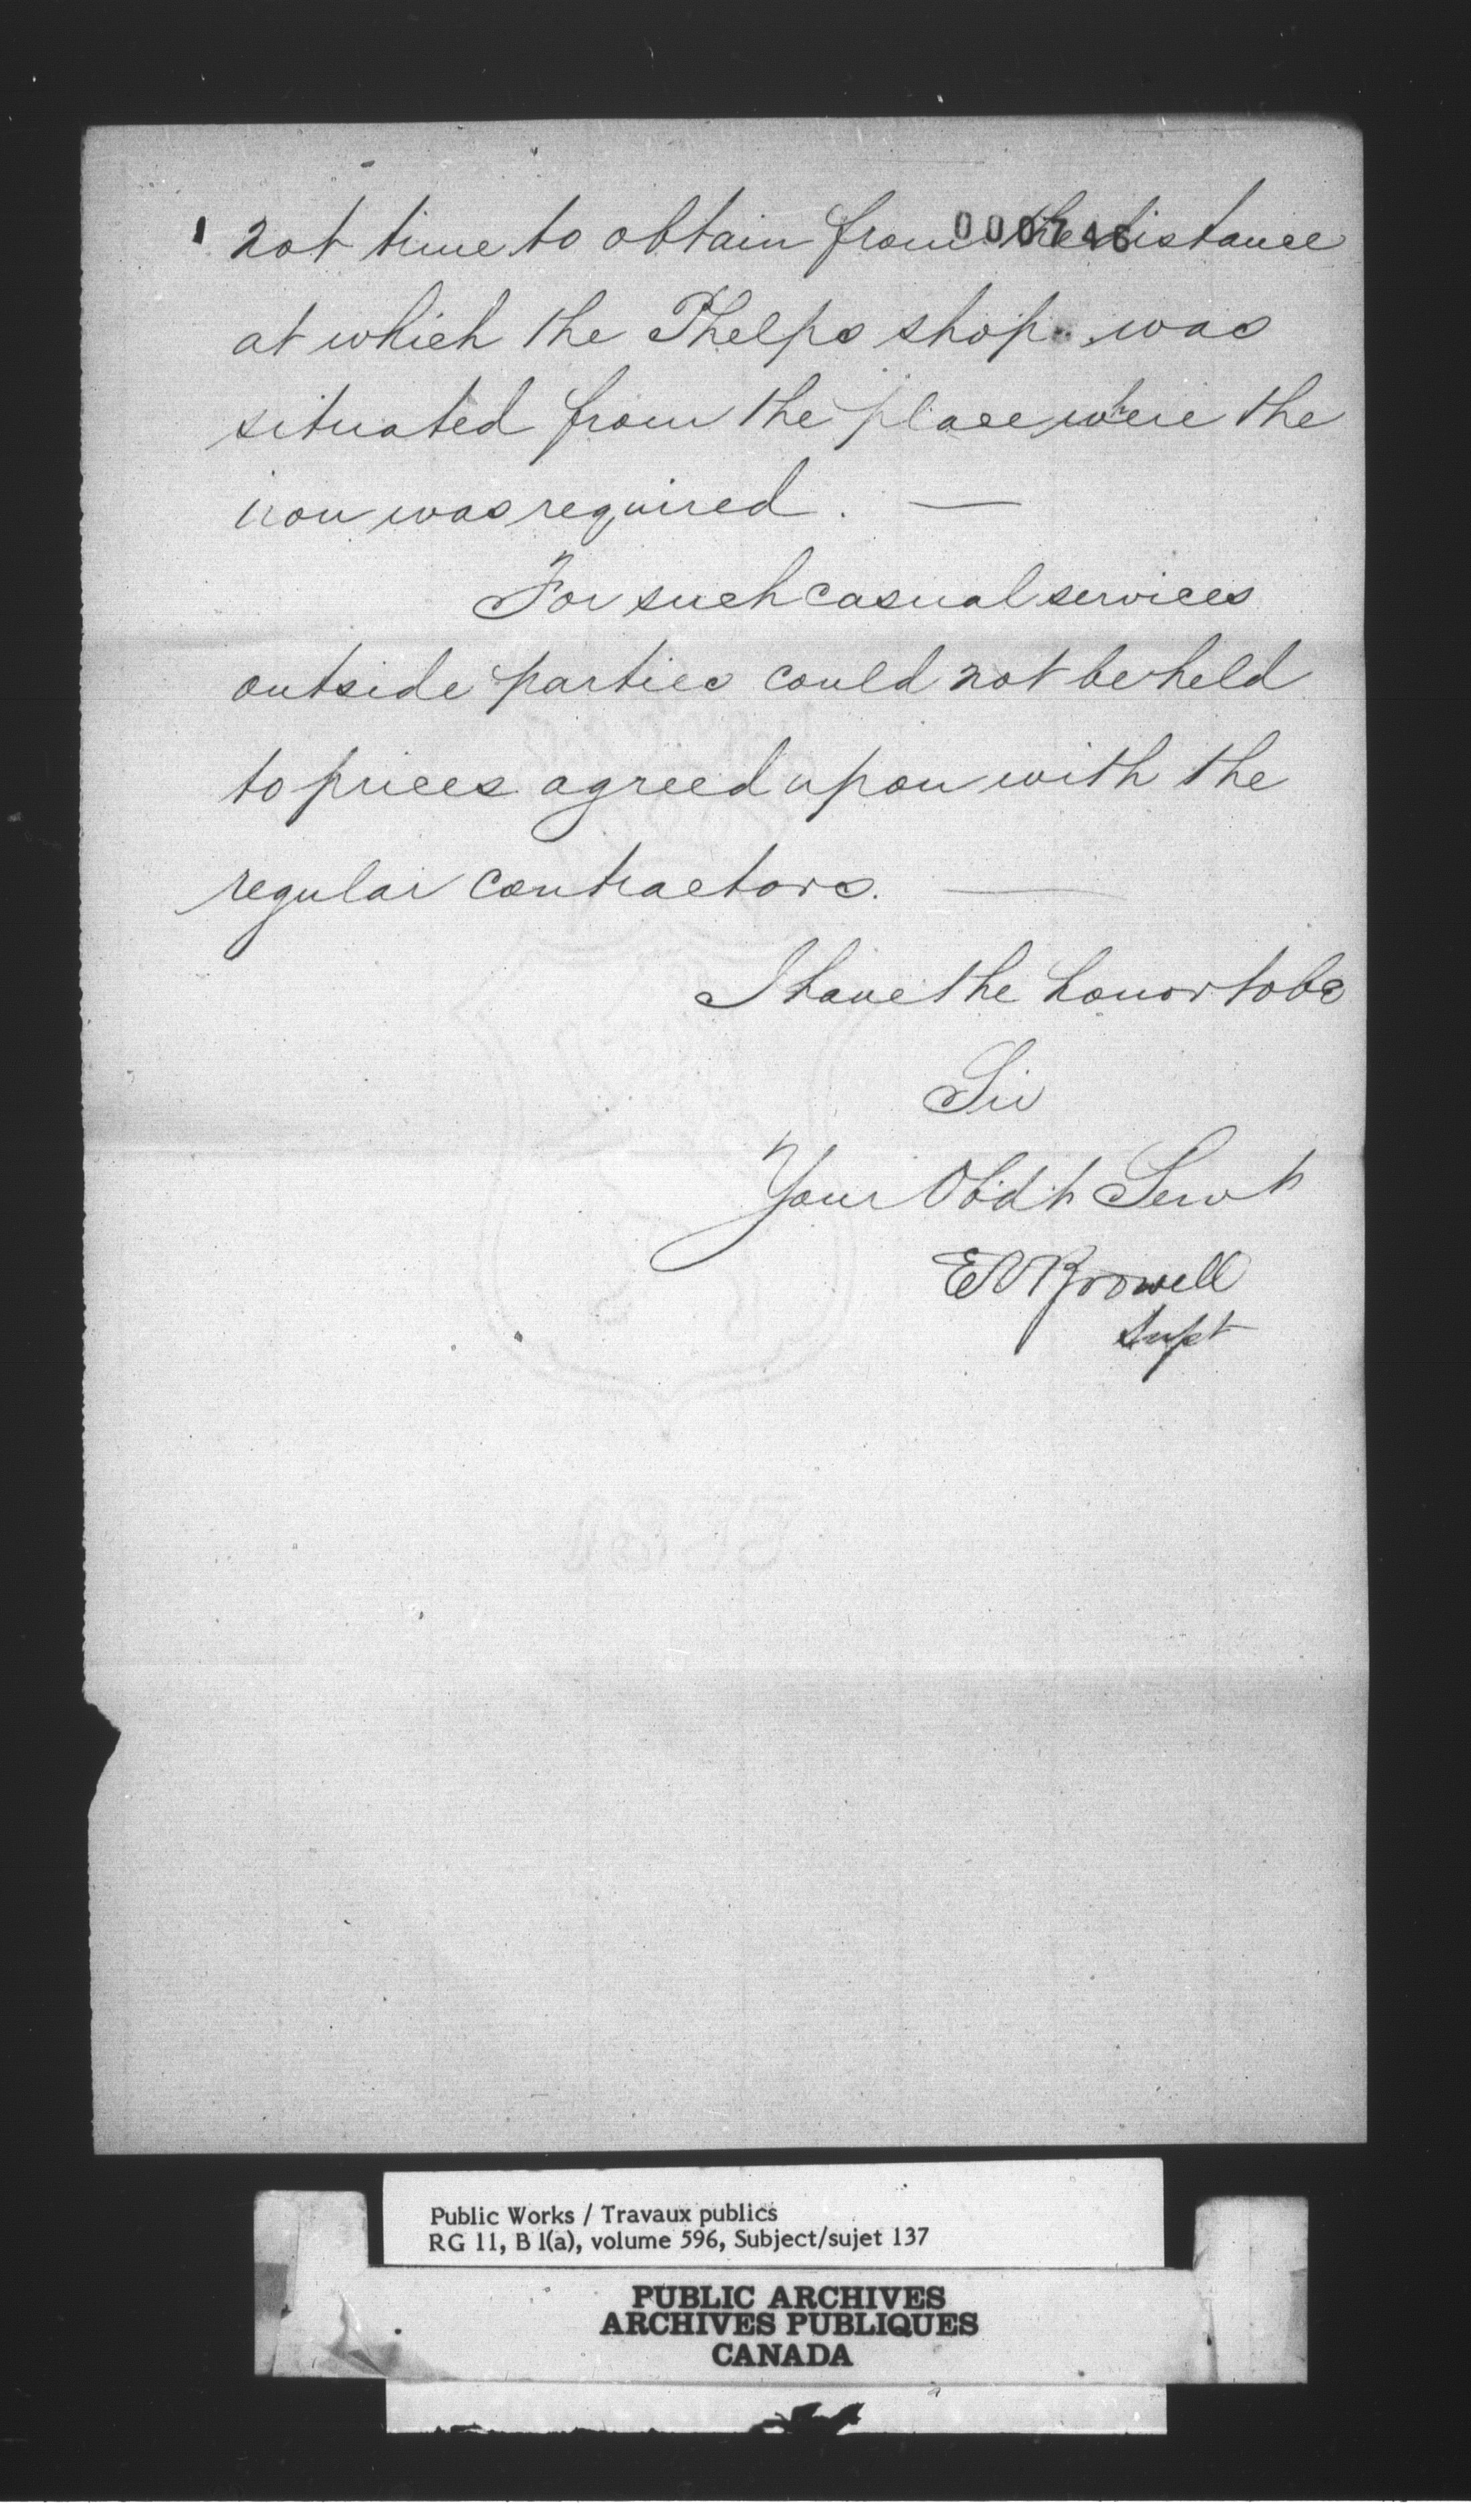 not time to obtain from the distance
000746
at which the Phelps shop was
situated from the place where the
iron was required. —
For such casual services
outside parties could not be held
to prices agreed upon with the
regular contractors. —
I have the honor to be
Sir
Your Obdt Servt
E A Browell
Supt
Public Works / Travaux publics
RG 11, B 1(a), volume 596, Subject/sujet 137
PUBLIC ARCHIVES
ARCHIVES PUBLIQUES
CANADA